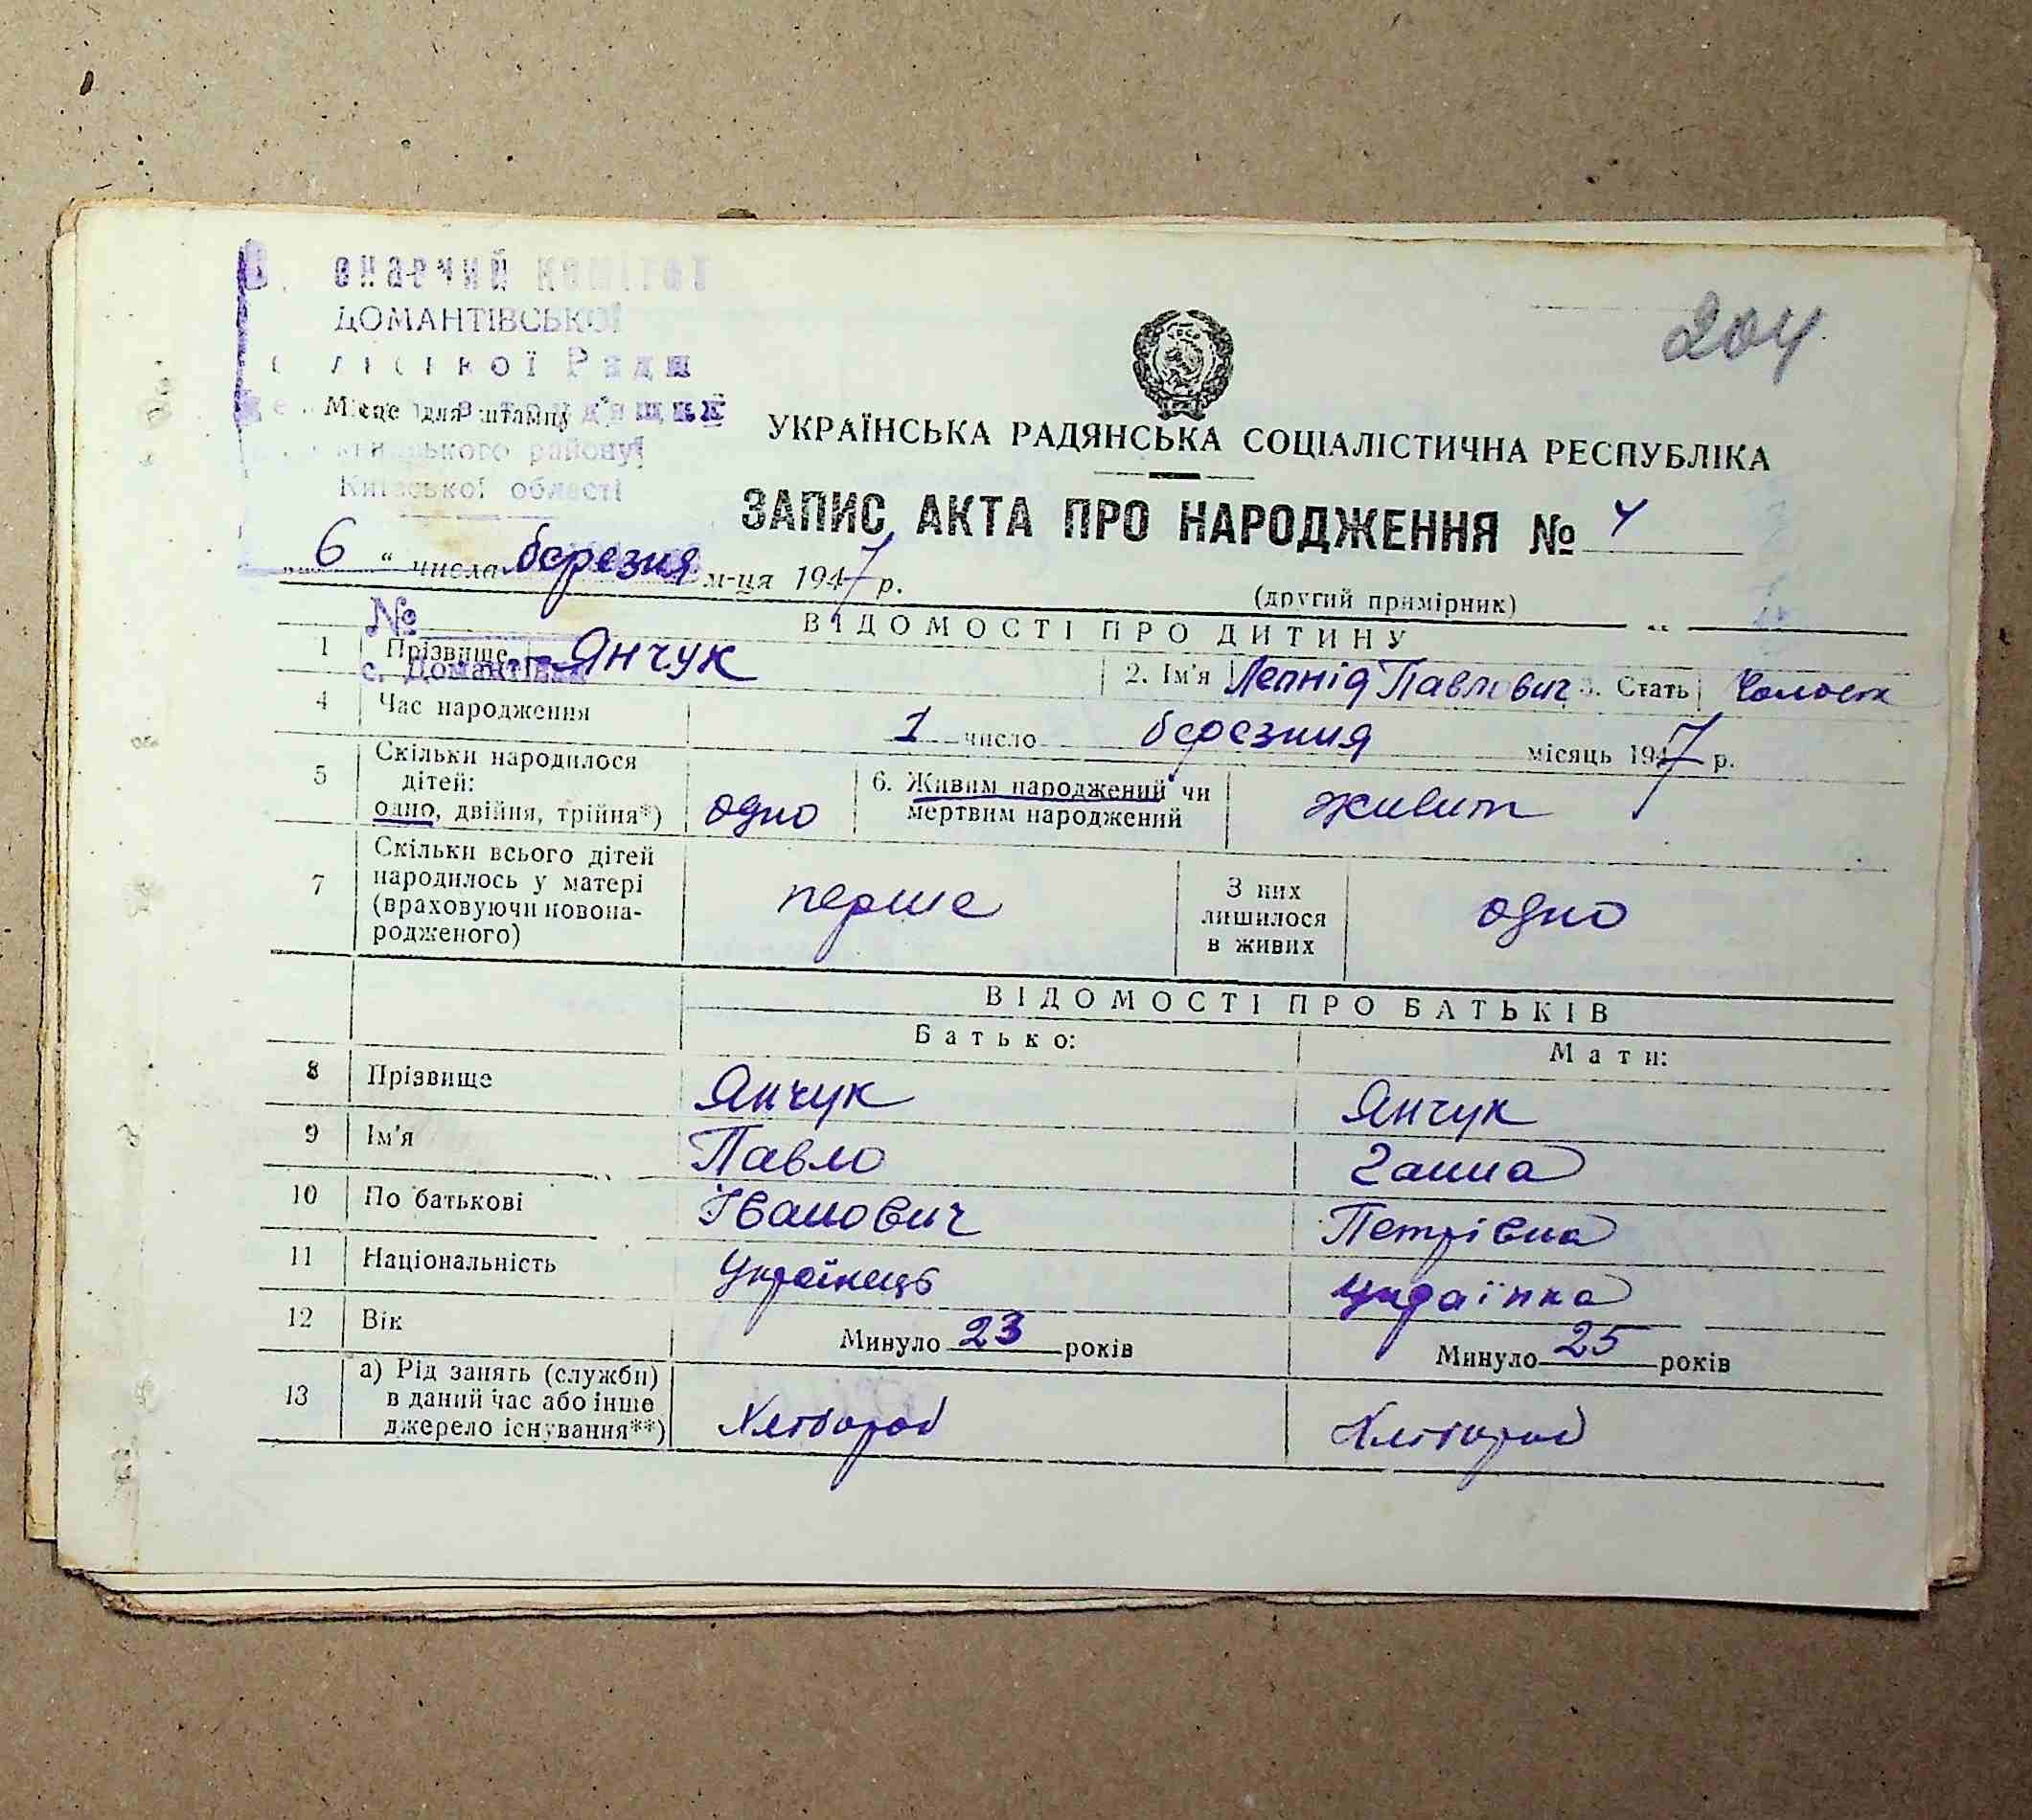 ДОМАНТІВСЬКОЇ
Ради
Місце для штампу
району
Київської області
204
УКРАЇНСЬКА РАДЯНСЬКА СОЦІАЛІСТИЧНА РЕСПУБЛІКА
ЗАПИС АКТА ПРО НАРОДЖЕННЯ № 4
„ 6 “ числа березня м-ця 1947 р.
(другий примірник)
№
ВІДОМОСТІ ПРО ДИТИНУ
1 Прізвище Янчук 2. Ім'я Леонід Павлович 3. Стать Чолост
с. Домантівка
4 Час народження 1 число березния місяць 1947 р.
5 Скільки народилося
дітей:
одно, двійня, трійня*) одно 6. Живим народжений чи
мертвим народжений живим
7 Скільки всього дітей
народилось у матері
(враховуючи новона-
родженого) перше З них
лишилося
в живих одно
ВІДОМОСТІ ПРО БАТЬКІВ
Батько: Мати:
8 Прізвище Янчук Янчук
9 Ім'я Павло Ганна
10 По батькові Іванович Петрівна
11 Національність Українець Українка
12 Вік Минуло 23 років Минуло 25 років
13 а) Рід занять (служби)
в даний час або інше
джерело існування**) Хлібороб Хлібороб